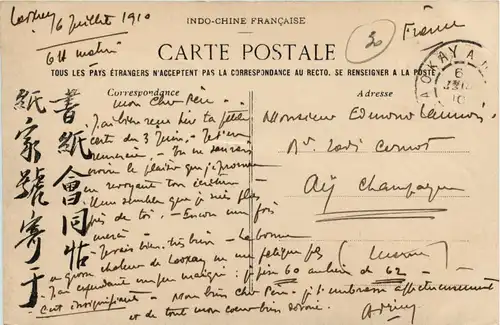 Laokay 16 juillet 1910
6 H matin
INDO-CHINE FRANÇAISE
30
France
CARTE POSTALE
TOUS LES PAYS ÉTRANGERS N'ACCEPTENT PAS LA CORRESPONDANCE AU RECTO. SE RENSEIGNER A LA POSTE
LAOKAY
Correspondance
Adresse
mon cher Père
J'ai bien reçu hier ta petite
carte du 3 Juin. Je t'en
remercie. Tu ne saurais
croire le plaisir que j'éprouve
en voyant ton écriture
Il me semble que je suis plus
près de toi. Encore une fois
merci
Je vais bien, très bien. La bonne
grosse chaleur de Laokay ne me fatigue pas
J'ai cependant un peu maigri: je pèse 60 au lieu de 62
C'est insignifiant. Mon bien cher Père. je t'embrasse affectueusement
et de tout mon coeur bien
Monsieur Edmond
Bd. Sadi Carnot
Aÿ Champagne
(Marne)
書紙會同帖
紙家號寄于